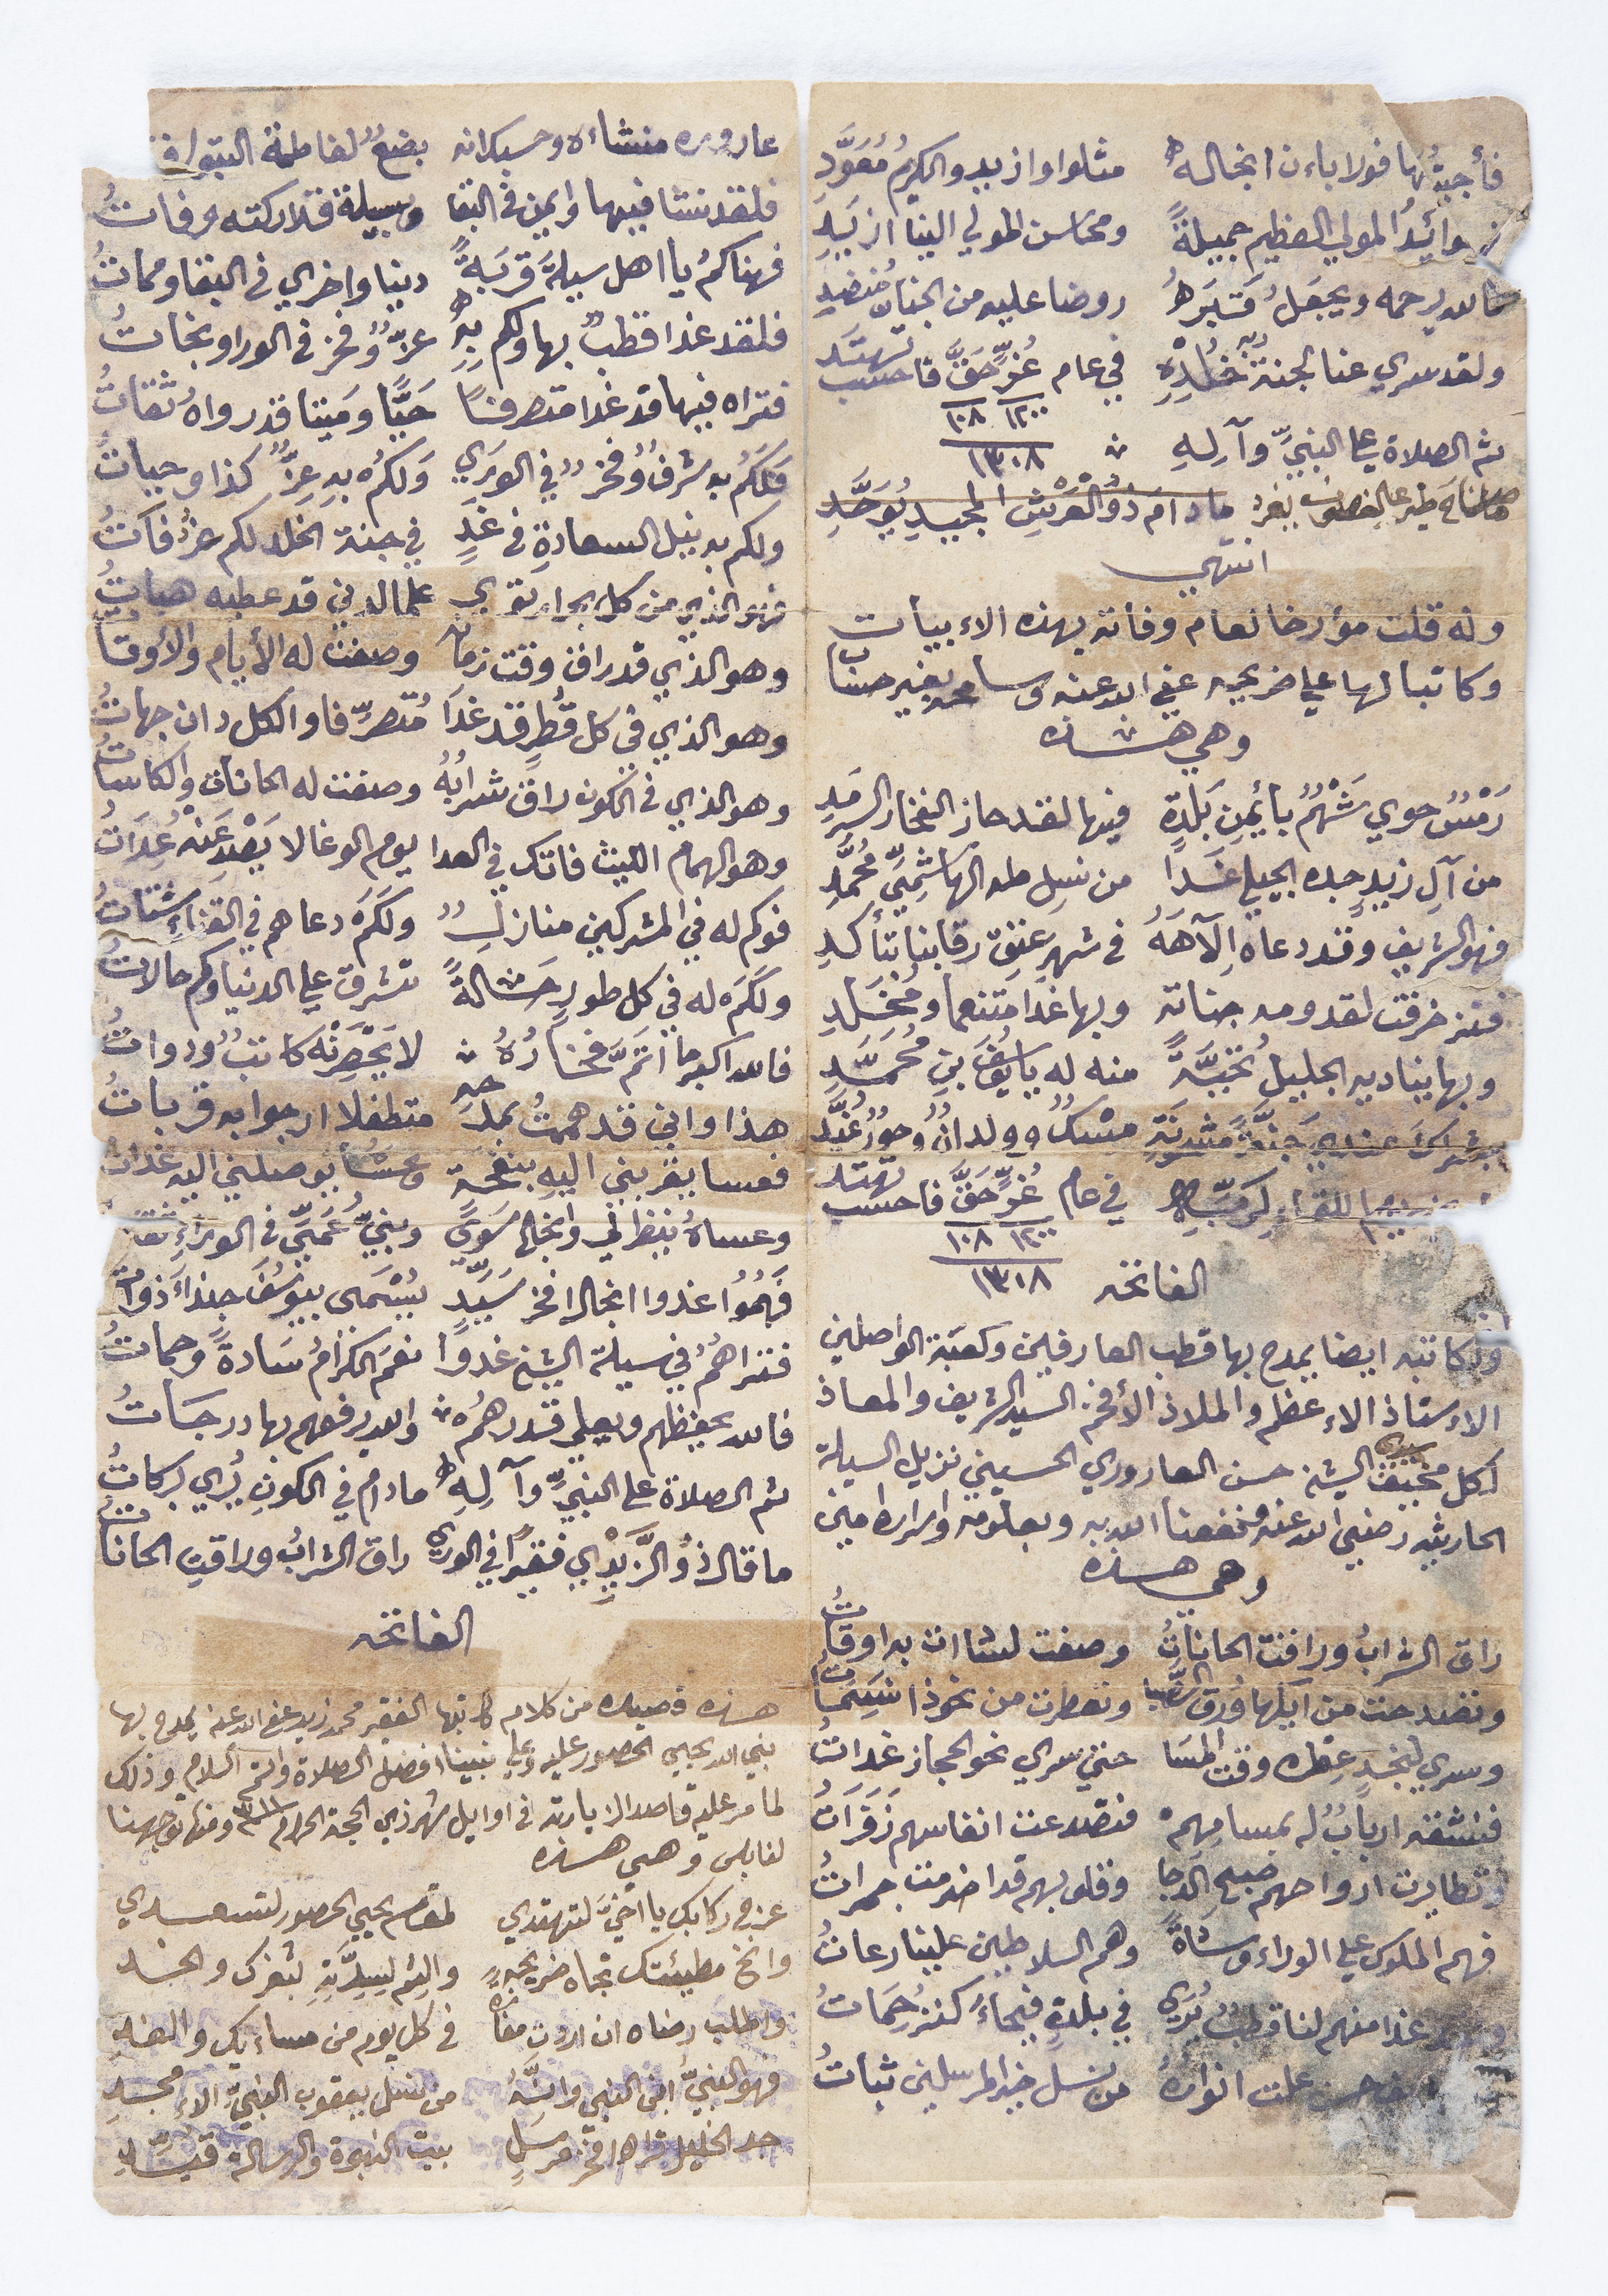 فأجبتُها فولاباءن انجاله مثلوا وازيد والكريمُ مُعَوَّدِ
وائدُ المولي العظيم جميلةً ومحاسن المولي الينا ازيَدِ
فالله يرحمه ويجعلُ قَبَرهُ روضا عليه من الجنان مُنضدِ
ولقد سري عنا لجنة خُلْدِهِ في عام غُرٍّ حَقَّ فاحسب تهتد
١٢٠٠ ١٠٨
١٣٠٨
ثم الصلاة علي النبيِّ وآلِهِ
ما ناح طير علي الغصون يغرد مادامَ ذُو الْعَرْشِ المجيدِ يُوَحَّدِ
انتهي
وله قلت مؤرخا لعام وفاته بهذه الاءبيات
وكاتبا لها علي ضريحه عفي الله عنه وسامحه بغير حساب
وهي هذه
رَمْسٌ حوي شَهْمٌ بأيمنِ بَلدةٍ فيها لقد حاز الفخار السرمَدِ
من آلِ زيدٍ جده الجيلي غَدا من نسلِ طه الهاشِميِّ مُحَمَّدِ
فهو الشريف وقد دعاه اِلآهَهُ في شهرِ عتق رقابنا بتأكدِ
فتزخرفت لقدومه جناته وبها غدا متنعما ومُخلَّدِ
وبها يناديه الجليلُ تحيَّةً منه له يا يوسُف بن مُحمَّدِ
بشراكَ عندي جنةً مسكٌ وولدانٌ وحورٌ غُيَّدِ
في عام غُرٍّ حَقَّ فاحسب تهتد
١٢٠٠ ١٠٨
١٣٠٨ الفاتحة
ولكاتبه ايضا يمدح بها قطب العارفين وكعبة الواصلين
الاءستاذ الاءعظم والملاذ الأفخم السيد الشريف والمعاذ
لكل مخيف سيدي الشيخ حسن العاروري الحسيني نزيل السيلة
الحارثيه رضي الله عنه ونفعنا الله به وبعلومه واسراره امين
وهي هذه
راق الشرابُ وراقت الحاناتُ وصفت لشاان به اوقاتُ
ولقد حنت من ايكها وُرق الصَّبا وتعطرت من نحوذا نسَماتُ
وسري لنجدٍ عِطره وقت المسَا حتي سري نحو الحجاز غداتُ
فنشقنه اربابٌ له بمسامِهِم فتصدعت انفاسهم زَفَراتُ
وتطايرت ارواحهم صبح الدجا وقلوبهم قد اضرمت جمراتُ
فهم الملوك علي الوراء وساةً وهم السلاطين علينا رعاتُ
غدا منهم لنا قطبٌ يُري في بلدةٍ فيحاءَ كنزُ حِمَاتُ
حسن علت انوارهُ من نسل خير المرسلين ثباتُ
عاروره منشاءه وحسبك انه بضعٌ لفاطمة البتول
فلقد نشا فيها وايمن في البقا وسيلة قد اركته ورفاتُ
فهناكمُ يا اهل سيلةَ قربَةً دنيا واخري في البقا ومماتُ
فلقد غدا قطبٌ بها ولكم به عزٌّ وفخر في الورا ونجاتُ
فتراه فيها قد غدا متصرفًا حَيًّا ومَيتا قد رواهُ ثقاتُ
فَلَكُم به شرفٌ وفخرٌ في الورَي وَلكُم بهِ عِزٌّ كذا وحياتُ
ولكم به نيل السعادةِ في غدٍ في جنة الخلد لكم غرفاتُ
فهو الذي من كل علما لدني قد عطيه هباتُ
وهو الذي قد راق وقت زمانه وصفت له الأيام والأوقاتُ
وهو الذي في كل قُطرٍ قد غدَا مُتصرِّفا والكل دان جهاتُ
وهو الذي في الكون راق شرابُهُ وصفت له الحانات والكاساتُ
وهو الهمام الليث فاتك في العدا يوم الوغا لا يَصْدِ عَنْهُ عِدَاتُ
فوكم له في المشركين منازلٌ ولكَم دعاهم في القناء شتاتُ
ولكَم له في كل طورٍ حالةً تشرق علي الدنيا وكم حالاتُ
فالله اكبر ما اتَمَّ فخارُهُ لا يَحْصِرَنْه كاتبٌ ودواتُ
هذا واني قد همتُ بمدحهِ متطفلا ارجوا به قرباتُ
فعسا يقربني اليه بنفحة وعساه يوصلني اليه غدات
وعساهُ ينظرني وانجالها سَويً وبنيُّ عَميِّ في الوراءِ
فَهُمُوا غدوا انجالا فخر سَيِّدٍ يُسْمَي بيوسُفَ حبذاءَ ذواتُ
فتراهُمُ في سيلة الشيخ غدوا نعمَ الكرامُ سَادةً وحماتُ
فالله يحفظهم ويعلي قدرهُم والله يرفعهم بها درجَاتُ
ثم الصلاة علي النبيِّ وآلِهِ مادام في الكونِ يُري بركاتُ
ما قال ذُو الزَّيْدِي فقيرًا في الوري راق الشرابُ وراقتِ الحاناتُ
الفاتحة
هذه قصيده من كلام كاتبها الفقير محمد زيد عفي الله عنه يمدح بها
نبي الله يحيي الحصور عليه وعلي نبينا افضل الصلاة واتم السلام وذلك
لما مر عليه قاصدا لزيارته في اوايل شهر ذي الحجة الحرام ١٣١١ ومنها توجهنا
لنابلس وهي هذه
عرج ركابك يا اخيَّ لتهتدي لمقام يحيي الحصور لتسعدي
وانخ مطيتك تجاه ضريحهِ والثم لسِدَّتِهِ بثغرك والخد
واطلب رضاه ان اردت مفازةً في كل يوم من مساءيك والغدِ
فهو النبيُّ ابن النبي وانَّهُ من نسل يعقوب النبيِّ الاءمجدِ
جد الخليل فخر مرسَلٍ بيت النبوة والرسالة